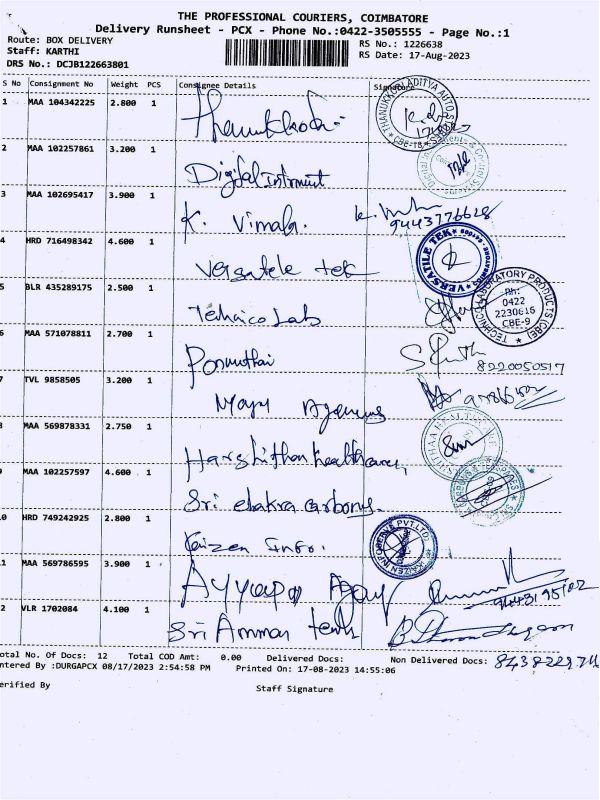 THE PROFESSIONAL COURIERS, COIMBATORE
Delivery Runsheet - PCX - Phone No.:0422-3505555 - Page No.:1
Route: BOX DELIVERY RS No.: 1226638
Staff: KARTHI RS Date: 17-Aug-2023
DRS No.: DCJB122663801
S No Consignment No Weight PCS Consignee Details Signature
1 MAA 104342225 2.800 1
2 MAA 102257861 3.200 1 Digital Intrument
3 MAA 102695417 3.900 1 K. Vimala. 9443776628
4 HRD 716498342 4.600 1 Versatele tek VERSATILE TEK
5 BLR 435289175 2.500 1 Technico Lab TECHNICO LABORATORY PRODUCTS (CBE)
Ph:
0422
2230616
CBE-9
6 MAA 571078811 2.700 1 Ponmuthai 8220050517
7 TVL 9858505 3.200 1
8 MAA 569878331 2.750 1 Harshithaa healthcare
9 MAA 102257597 4.600 1 Sri chakra carbons.
0 HRD 749242925 2.800 1 Kaizen Info. KAIZEN INFOSERVE PVT.LTD.
1 MAA 569786595 3.900 1 Ayyappa Agay
2 VLR 1702084 4.100 1 Sri Amman
otal No. Of Docs: 12 Total COD Amt: 0.00 Delivered Docs: Non Delivered Docs:
ntered By :DURGAPCX 08/17/2023 2:54:58 PM Printed On: 17-08-2023 14:55:06
erified By Staff Signature